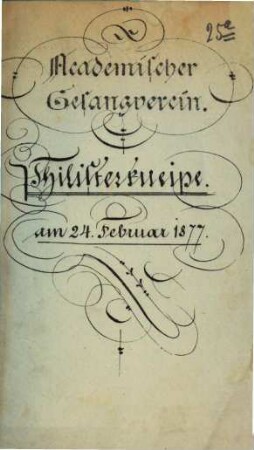 25a
Academischer
Gesangverein.
Philisterkneipe.
am 24. Februar 1877.